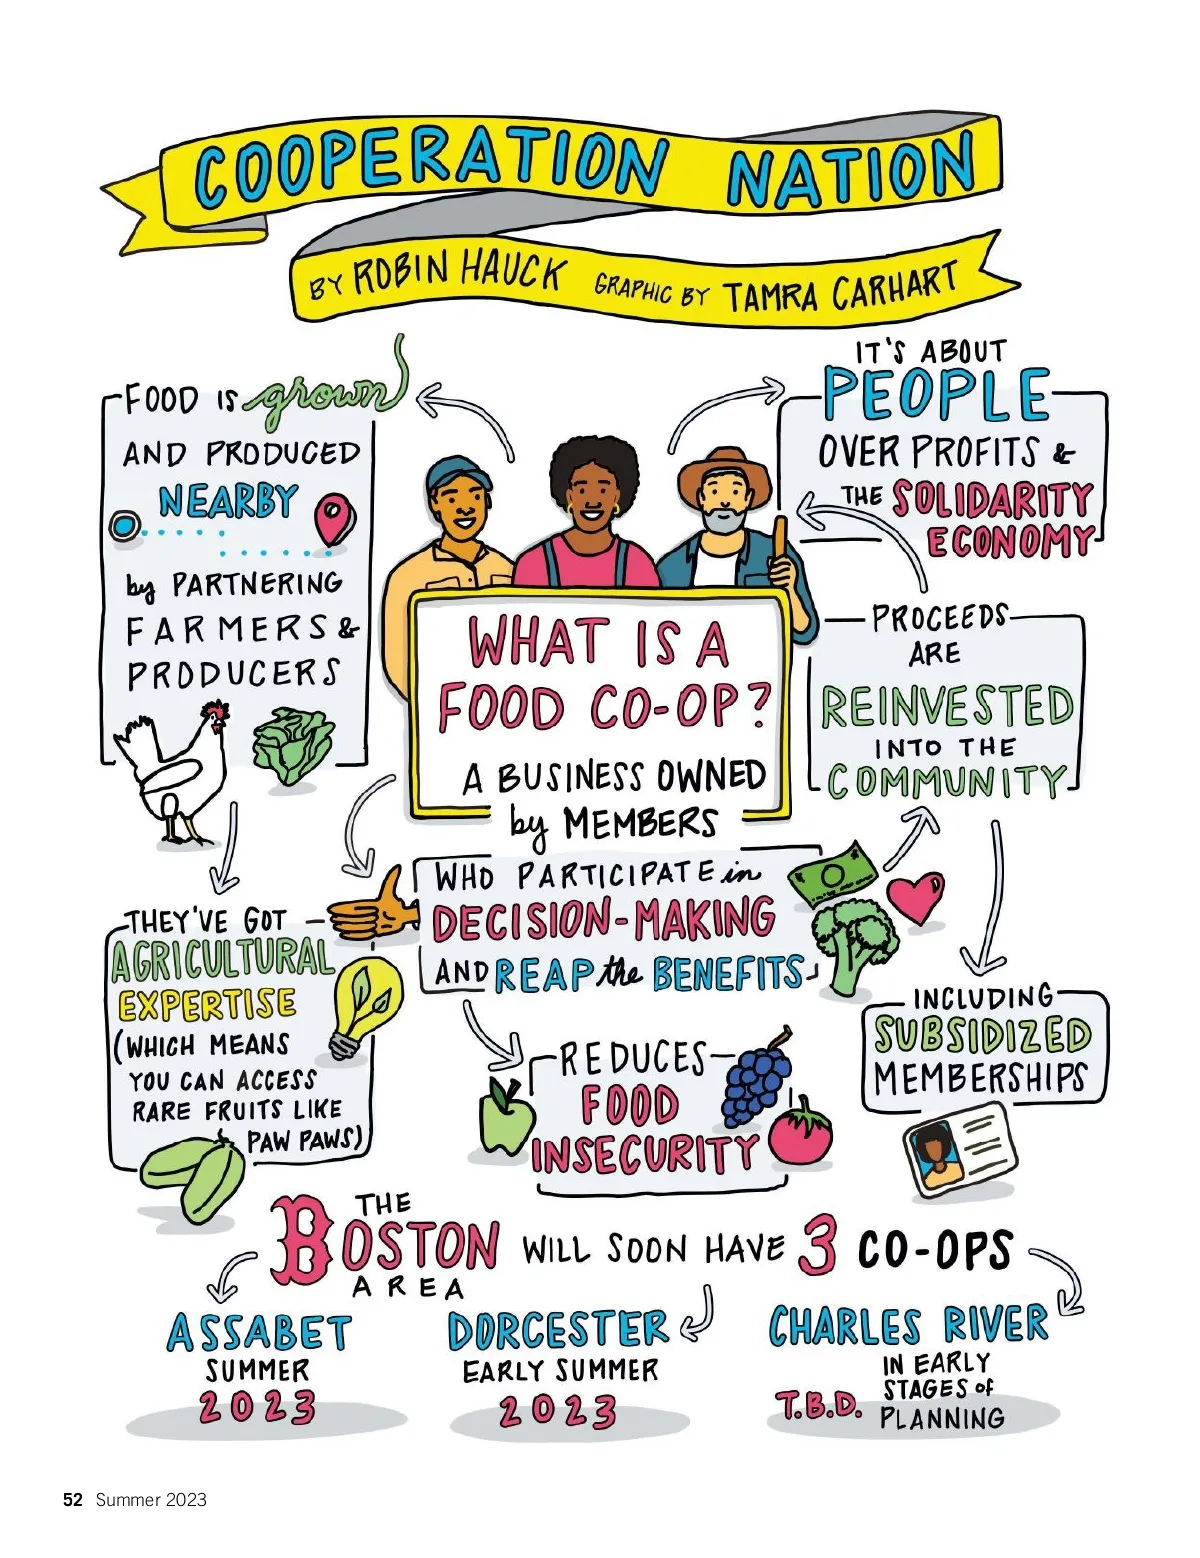 COOPERATION NATION
BY ROBIN HAUCK GRAPHIC BY TAMRA CARHART
FOOD IS grown
AND PRODUCED
NEARBY
by PARTNERING
FARMERS &
PRODUCERS
IT'S ABOUT
PEOPLE
OVER PROFITS &
THE SOLIDARITY
ECONOMY
WHAT IS A
FOOD CO-OP?
A BUSINESS OWNED
by MEMBERS
WHO PARTICIPATE in
DECISION-MAKING
AND REAP the BENEFITS
PROCEEDS
ARE
REINVESTED
INTO THE
COMMUNITY
THEY'VE GOT
AGRICULTURAL
EXPERTISE
(WHICH MEANS
YOU CAN ACCESS
RARE FRUITS LIKE
PAW PAWS)
REDUCES
FOOD
INSECURITY
INCLUDING
SUBSIDIZED
MEMBERSHIPS
THE
BOSTON WILL SOON HAVE 3 CO-OPS
AREA
ASSABET
SUMMER
2023
DORCESTER
EARLY SUMMER
2023
CHARLES RIVER
T.B.D. IN EARLY
STAGES OF
PLANNING
52 Summer 2023